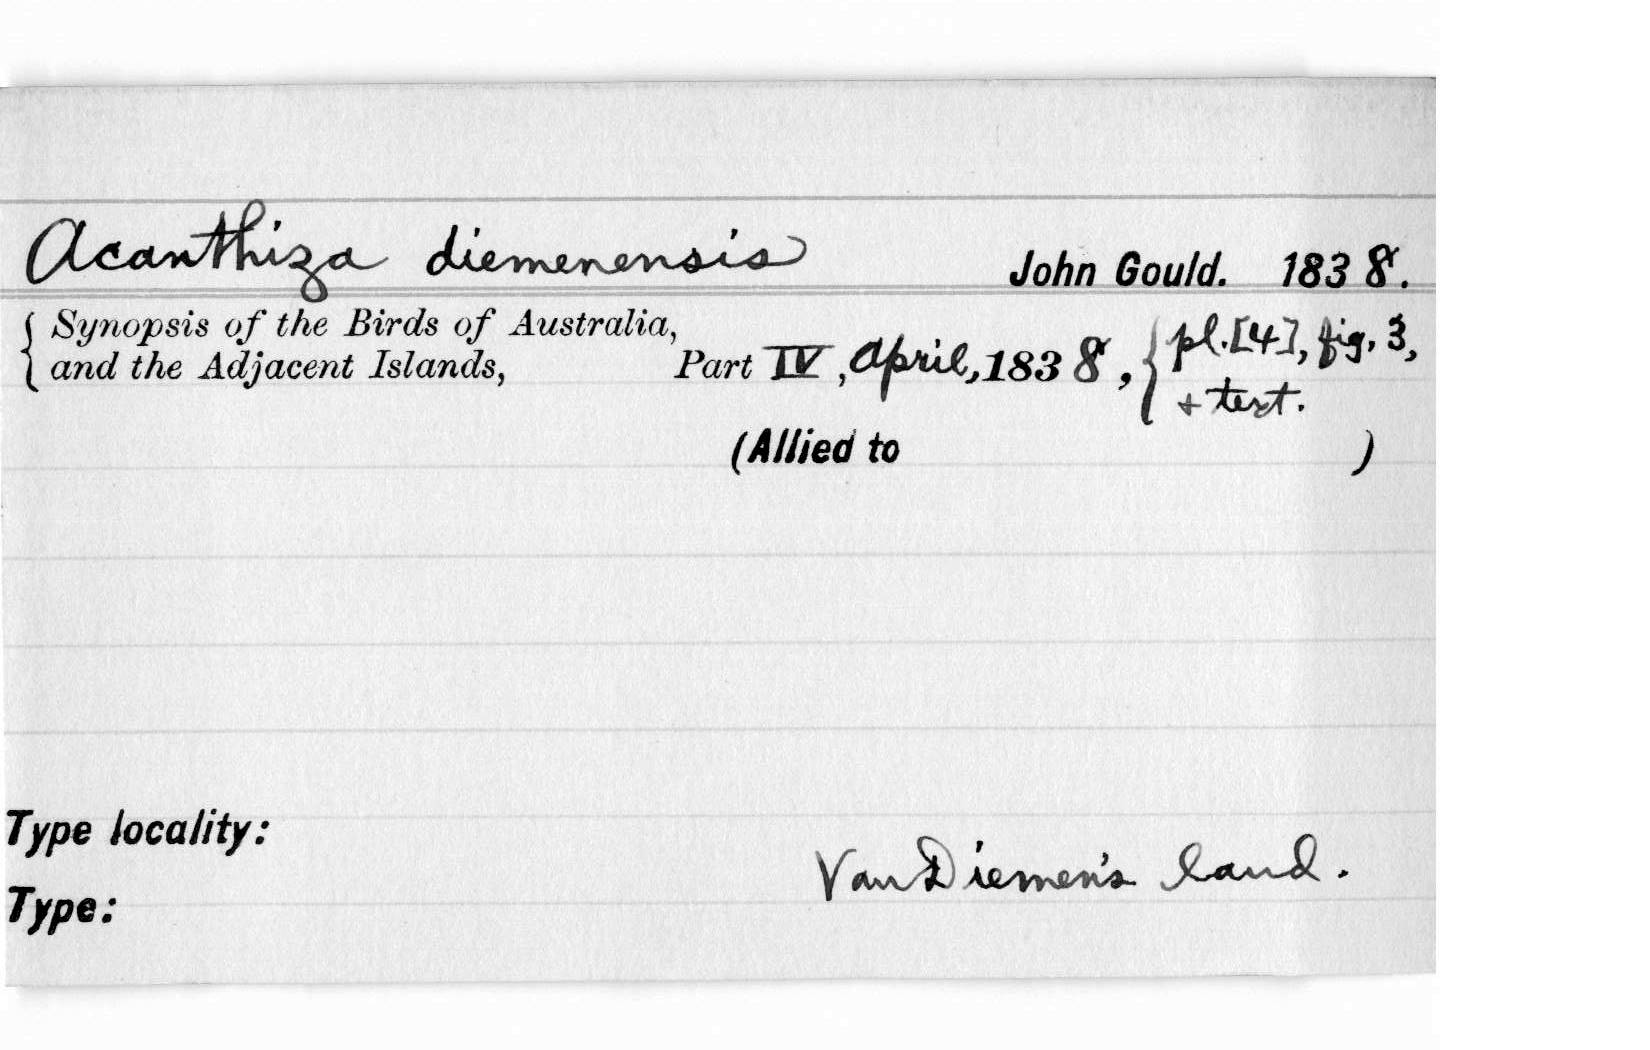 Acanthiza diemenensis John Gould. 1838.
{ Synopsis of the Birds of Australia,
and the Adjacent Islands, Part IV, April, 1838, { pl. [4], fig. 3,
+ text.
(Allied to )
Type locality:
Van Diemen's land.
Type: